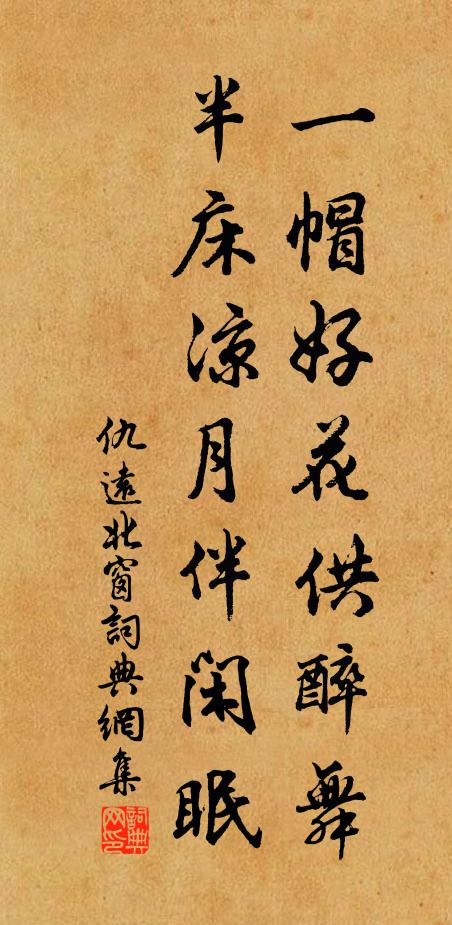 一帽好花供醉舞
半床涼月伴闲眠
仇遠北窗詞典網集
詞典网印